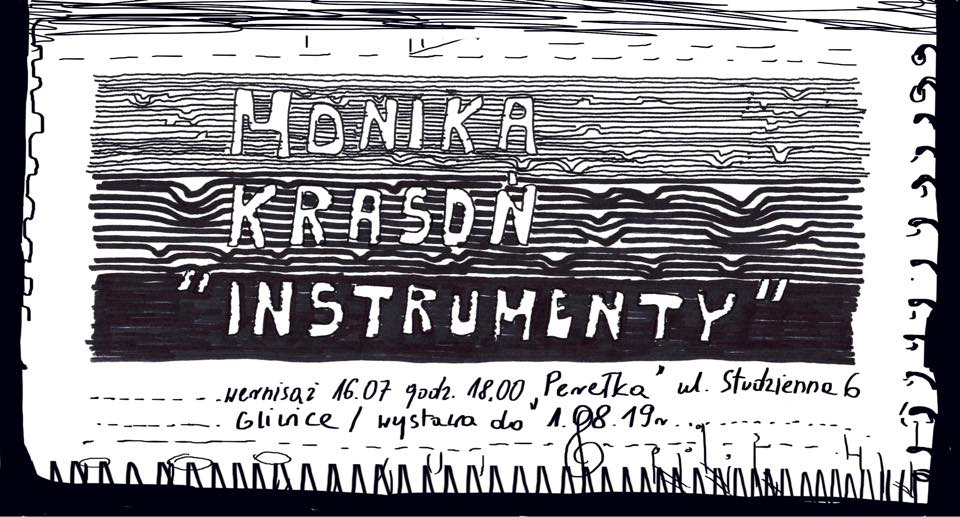 MONIKA
KRASOŃ
"INSTRUMENTY"
wernisaż 16.07 godz. 18.00 „Perełka” ul. Studzienna 6
Gliwice / wystawa do 1.08.19r.